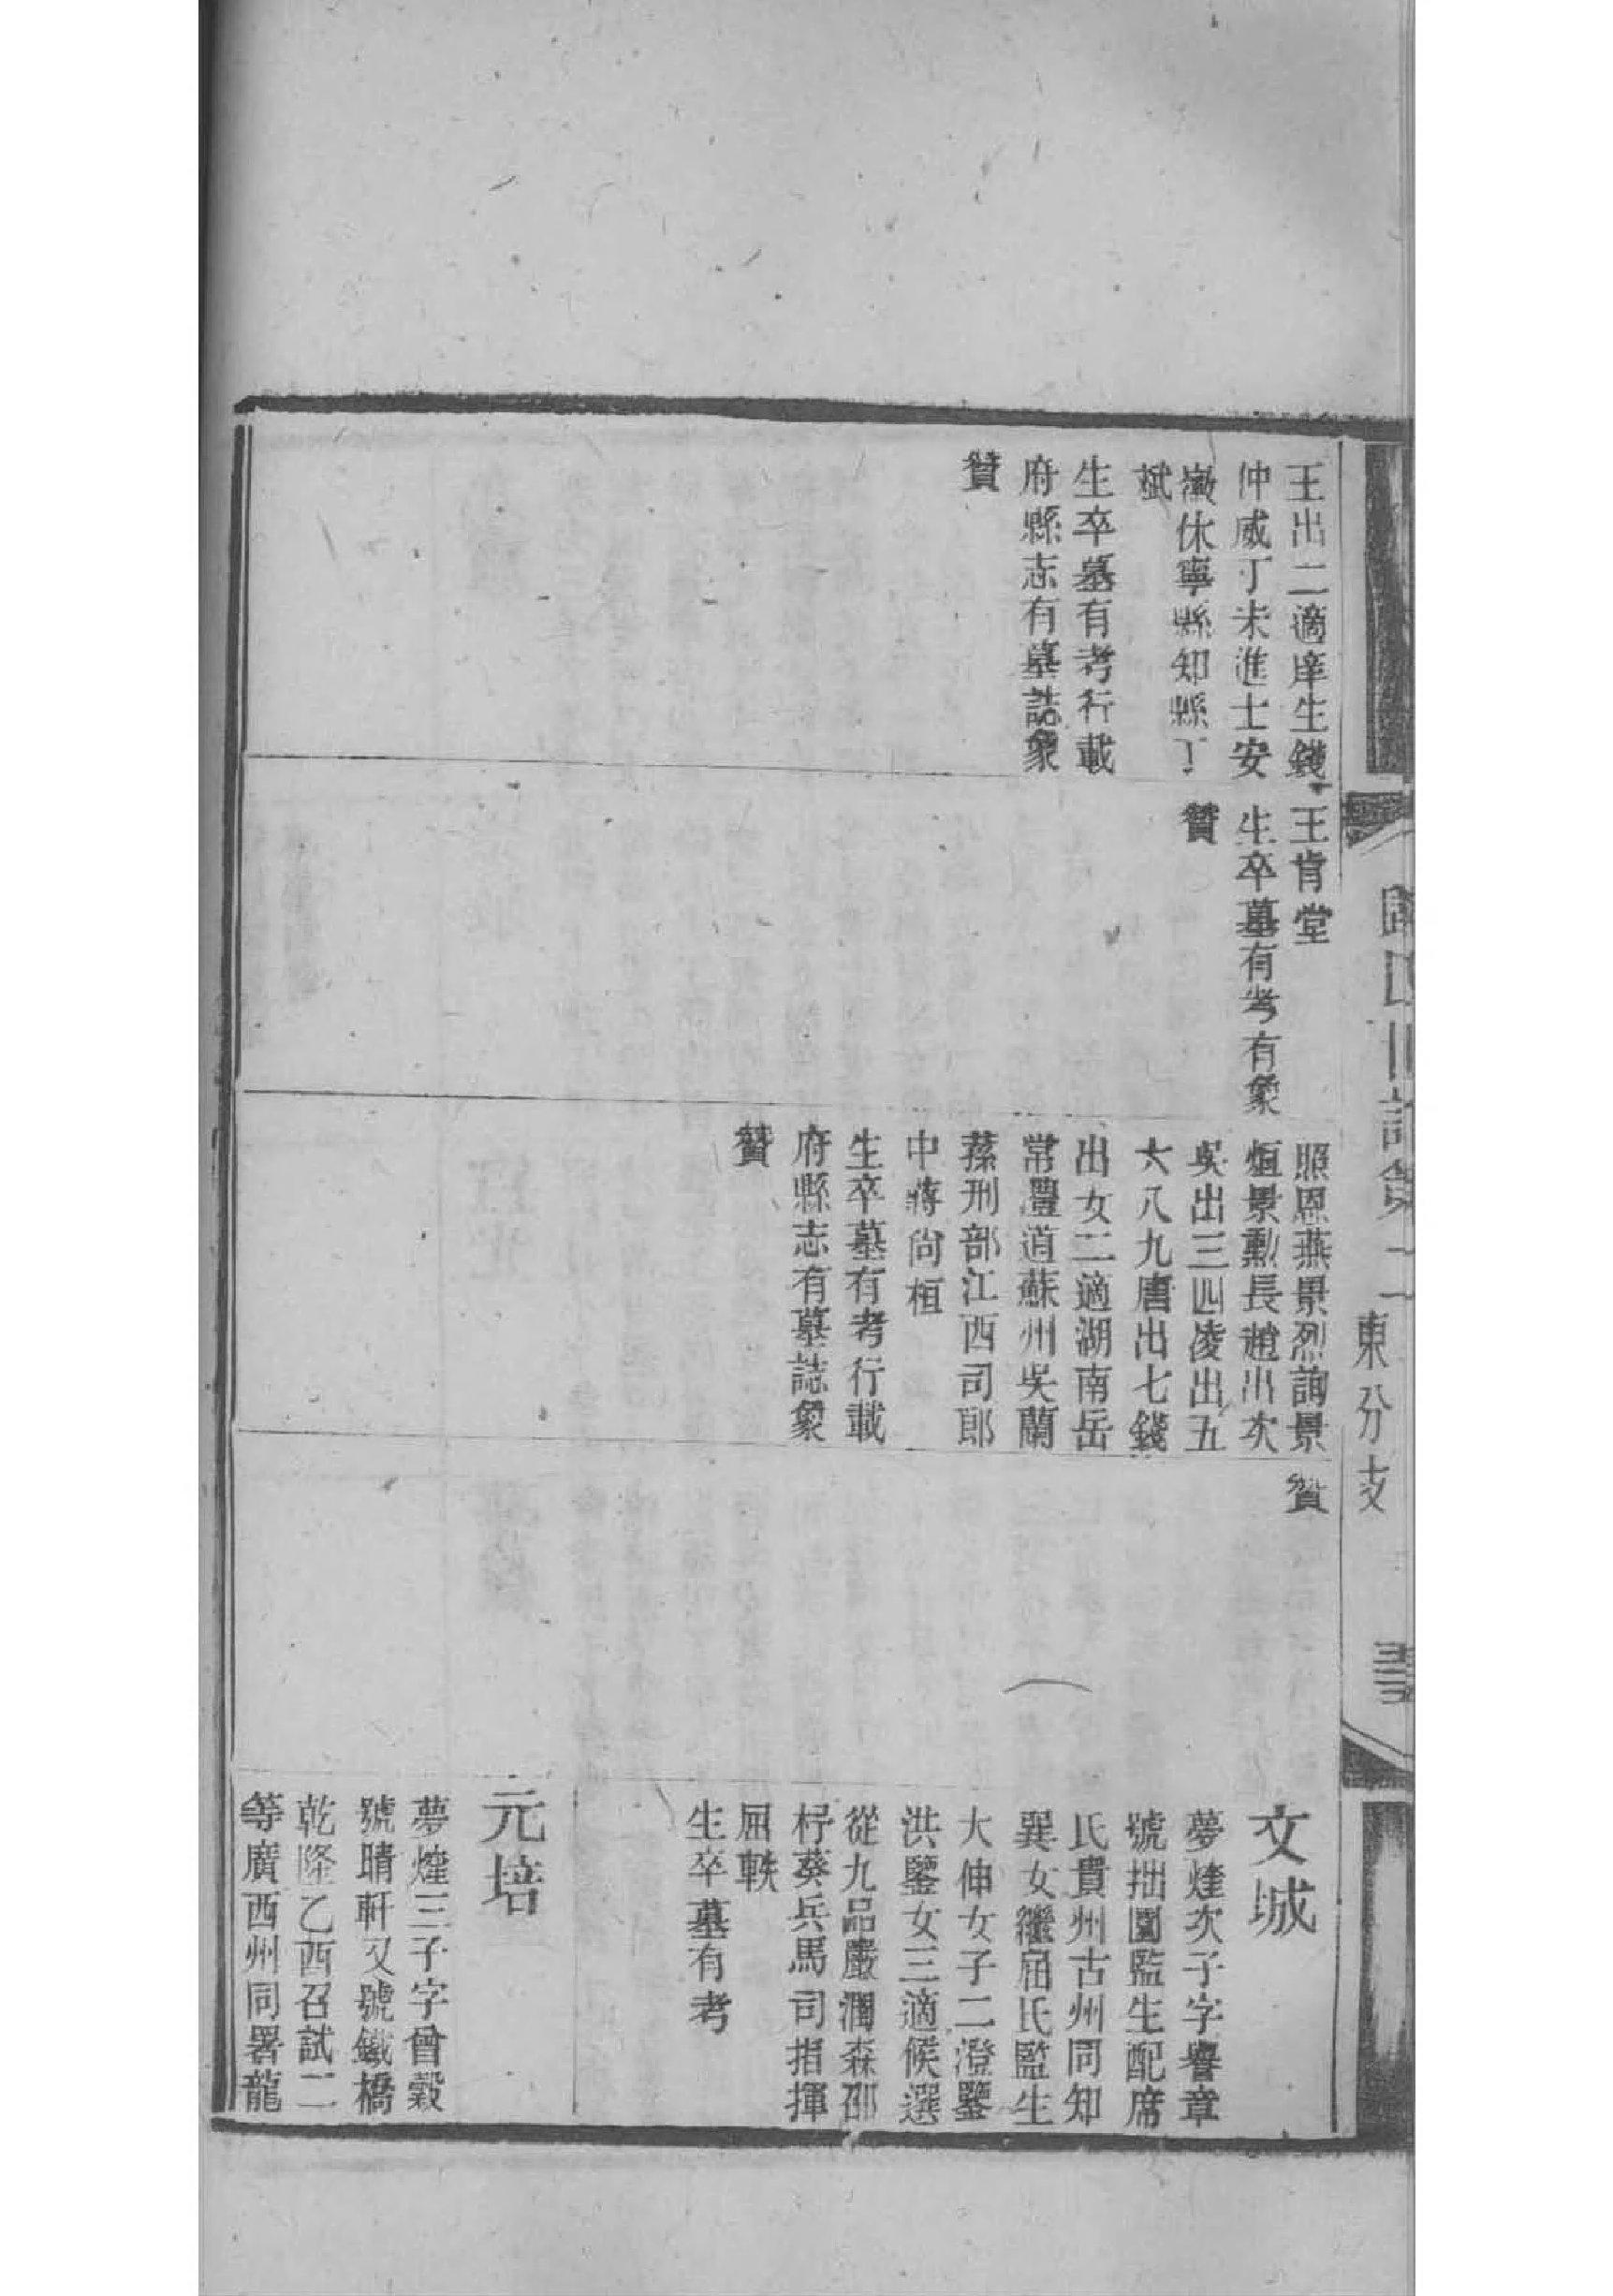 東分支
王出二適庠生錢
仲威丁未進士安
徽休寧縣知縣丁
斌
生卒墓有考行載
府縣志有墓誌象
贊
王肯堂
生卒墓有考有象
贊
照恩燕景烈詢景
烜景勳長趙出次
吳出三四凌出五
六八九唐出七錢
出女二適湖南岳
常澧道蘇州吳蘭
蓀刑部江西司郎
中蔣尚桓
生卒墓有考行載
府縣志有墓誌象
贊
贊
文城
夢煃次子字譽章
號拙園監生配席
氏貴州古州同知
巽女繼屈氏監生
大伸女子二澄鑒
洪鑒女三適候選
從九品嚴潤森邵
杍葵兵馬司指揮
屈軼
生卒墓有考
元培
夢煃三子字曾穀
號晴軒又號鐵橋
乾隆乙酉召試二
等廣西州同署龍